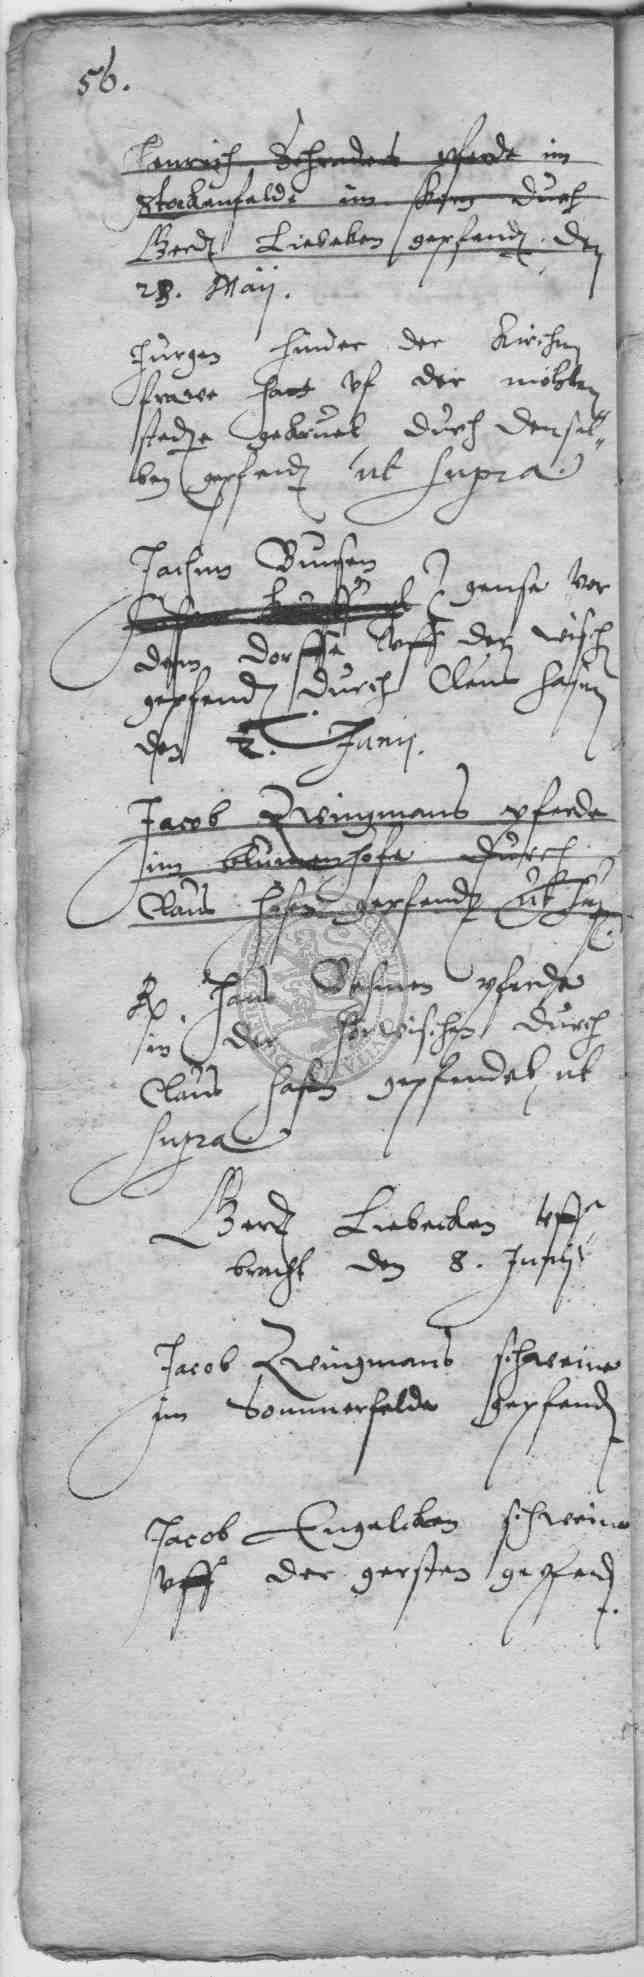 56.
Henrich Schraders pferde im
Stockenfelde im Korn durch
Gerdt Liebeken gepfendt den
28. Maij.
Jurgen hinder der Kirchen
frawe hatt vf der möhlen
stedte gekruet durch densel„
ben gepfendt ut supra
Jochim Bunsen
gense vor
dem dorffe vff der wisch
gepfendt durch Claus Hasen
den 2. Junij.
Jacob Zwingmans pferde
im blumenhofe durch
Claus Hasen gepfendt ut sup.
Hans pferde
in der Horwischen durch
Claus Hasen gepfendet ut
supra
Gerdt Liebecken vff
bracht den 8. Junij
Jacob Zwingmans schweine
im Sommerfelde gepfendt
Jacob Engelcken schweine
vff der gersten gepfendt.